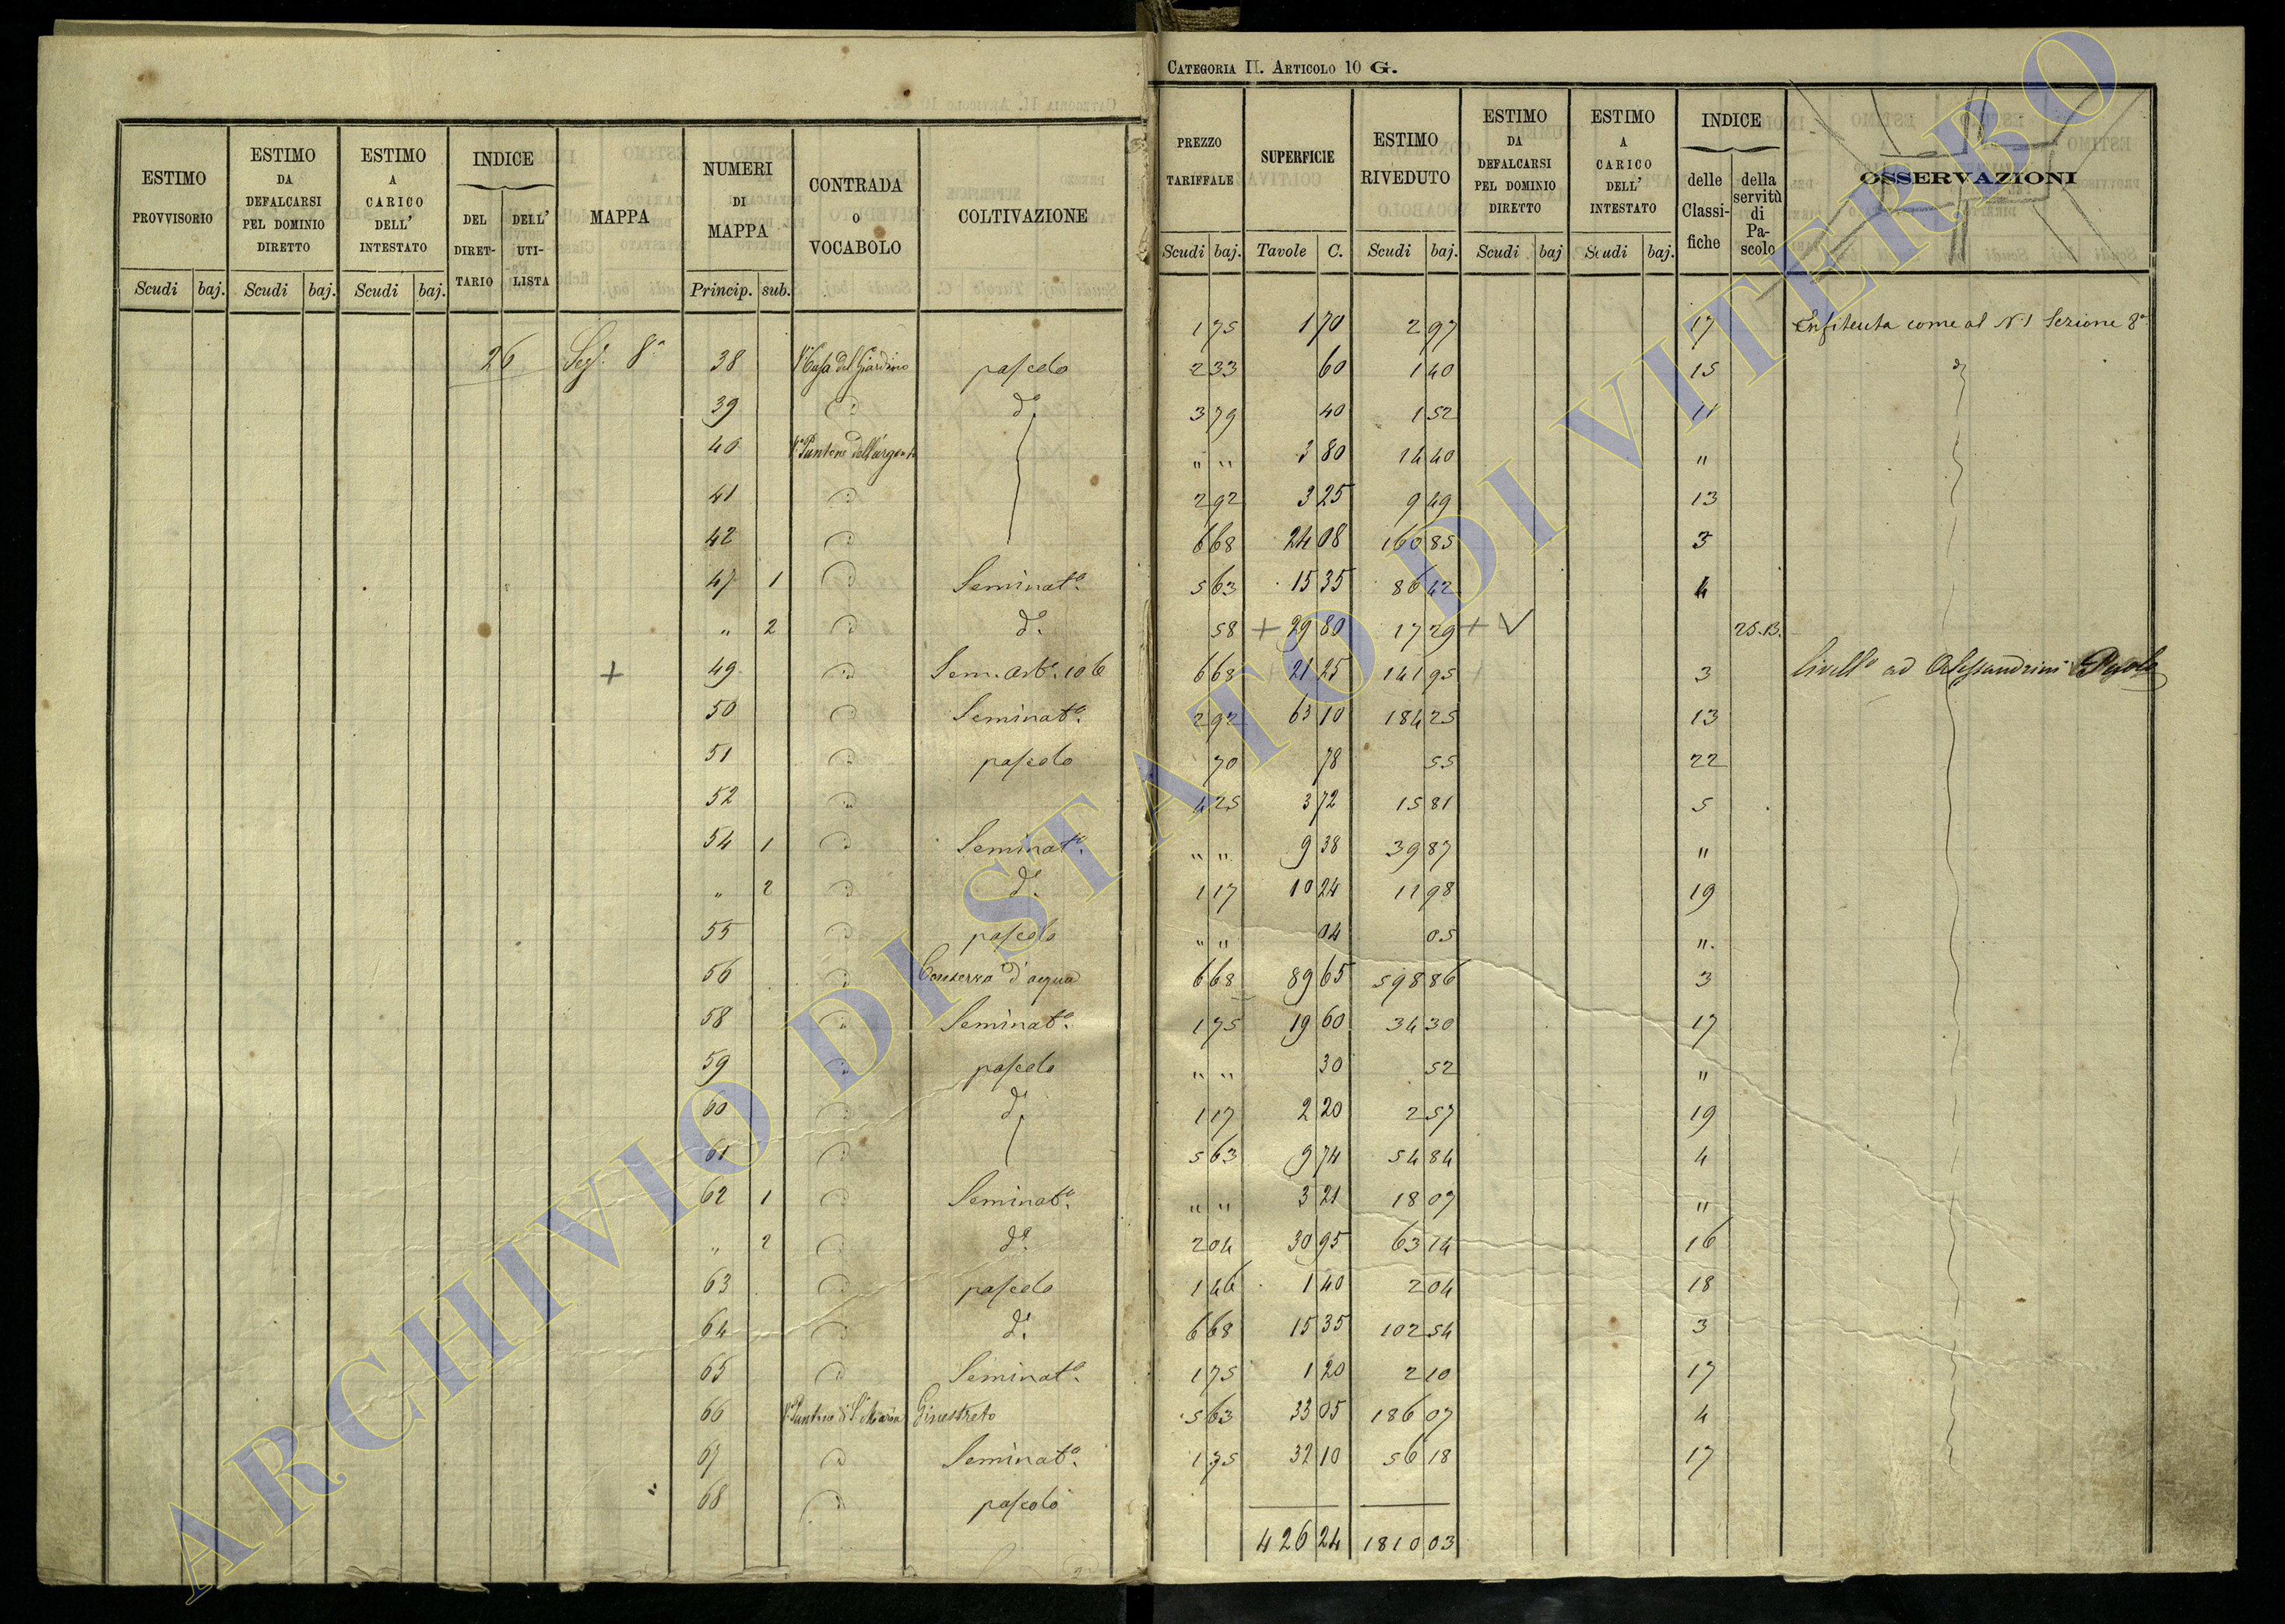 CATEGORIA II. ARTICOLO 10 G.
ESTIMO PROVVISORIO
ESTIMO DA DEFALCARSI PEL DOMINIO DIRETTO
ESTIMO A CARICO DELL' INTESTATO
INDICE
DEL DIRET-TARIO
DELL' UTI-LISTA
MAPPA
NUMERI DI MAPPA
CONTRADA O VOCABOLO
COLTIVAZIONE
Scudi baj. Scudi baj. Scudi baj. Princip. sub.
26 Sez. 8a 38 Va Casa del Giardino pascolo
39 d°
40 Va Puntone dell'argento
41
42
47 1 Seminat°.
" 2 d°.
49 Sem. Arb. 106
50 Seminat°.
51 pascolo
52
54 1 Seminat°.
" 2 d°.
55 pascolo
56 Conserva d'acqua
58 Seminat°.
59 pascolo
60 d°.
61
62 1 Seminat°.
" 2 d°.
63 pascolo
64 d°.
65 Seminat°.
66 Ginestreto
67 Seminat°.
68 pascolo
PREZZO TARIFFALE
SUPERFICIE
ESTIMO RIVEDUTO
ESTIMO DA DEFALCARSI PEL DOMINIO DIRETTO
ESTIMO A CARICO DELL' INTESTATO
INDICE
delle Classi-fiche
della servitù di Pa-scolo
OSSERVAZIONI
Scudi baj. Tavole C. Scudi baj. Scudi baj Scudi baj.
1 75 1 70 2 97 17 Enfiteuta come al N. 1 Sezione 8a
2 33 60 1 40 15 d
3 79 40 1 52 11
" " 3 80 14 40 "
2 92 3 25 9 49 13
6 68 24 08 160 85 3
5 63 15 35 86 42 4
58 + 29 80 17 29 + V 25.B.
6 68 21 25 141 95 3 livell° ad Alessandrini Paolo
2 92 63 10 184 25 13
70 78 55 22
4 25 3 72 15 81 5
" " 9 38 39 87 "
1 17 10 24 11 98 19
" " 04 05 "
6 68 89 65 598 86 3
1 75 19 60 34 30 17
" " 30 52 "
1 17 2 20 2 57 19
5 63 9 74 54 84 4
" " 3 21 18 07 "
2 04 30 95 63 14 16
1 46 1 40 2 04 18
6 68 15 35 102 54 3
1 75 1 20 2 10 17
5 63 33 05 186 07 4
1 75 32 10 56 18 17
426 24 1810 03
ARCHIVIO DI STATO DI VITERBO